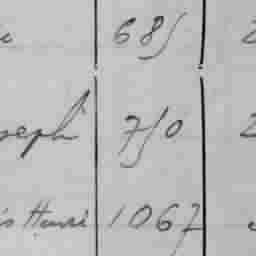 685 2
seph 750 2
is Henri 1067